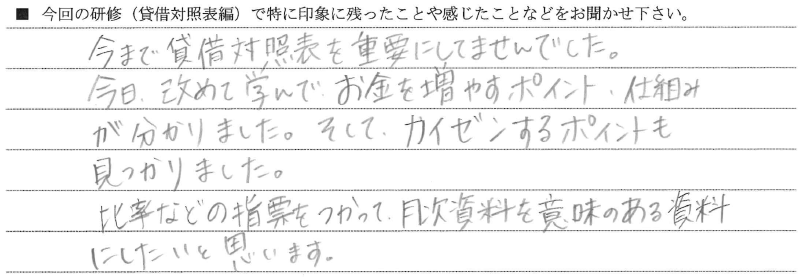 ■ 今回の研修（貸借対照表編）で特に印象に残ったことや感じたことなどをお聞かせ下さい。
今まで貸借対照表を重要にしてませんでした。
今日、改めて学んで、お金を増やすポイント、仕組み
が分かりました。そして、カイゼンするポイントも
見つかりました。
比率などの指票をつかって、月次資料を意味のある資料
にしたいと思います。